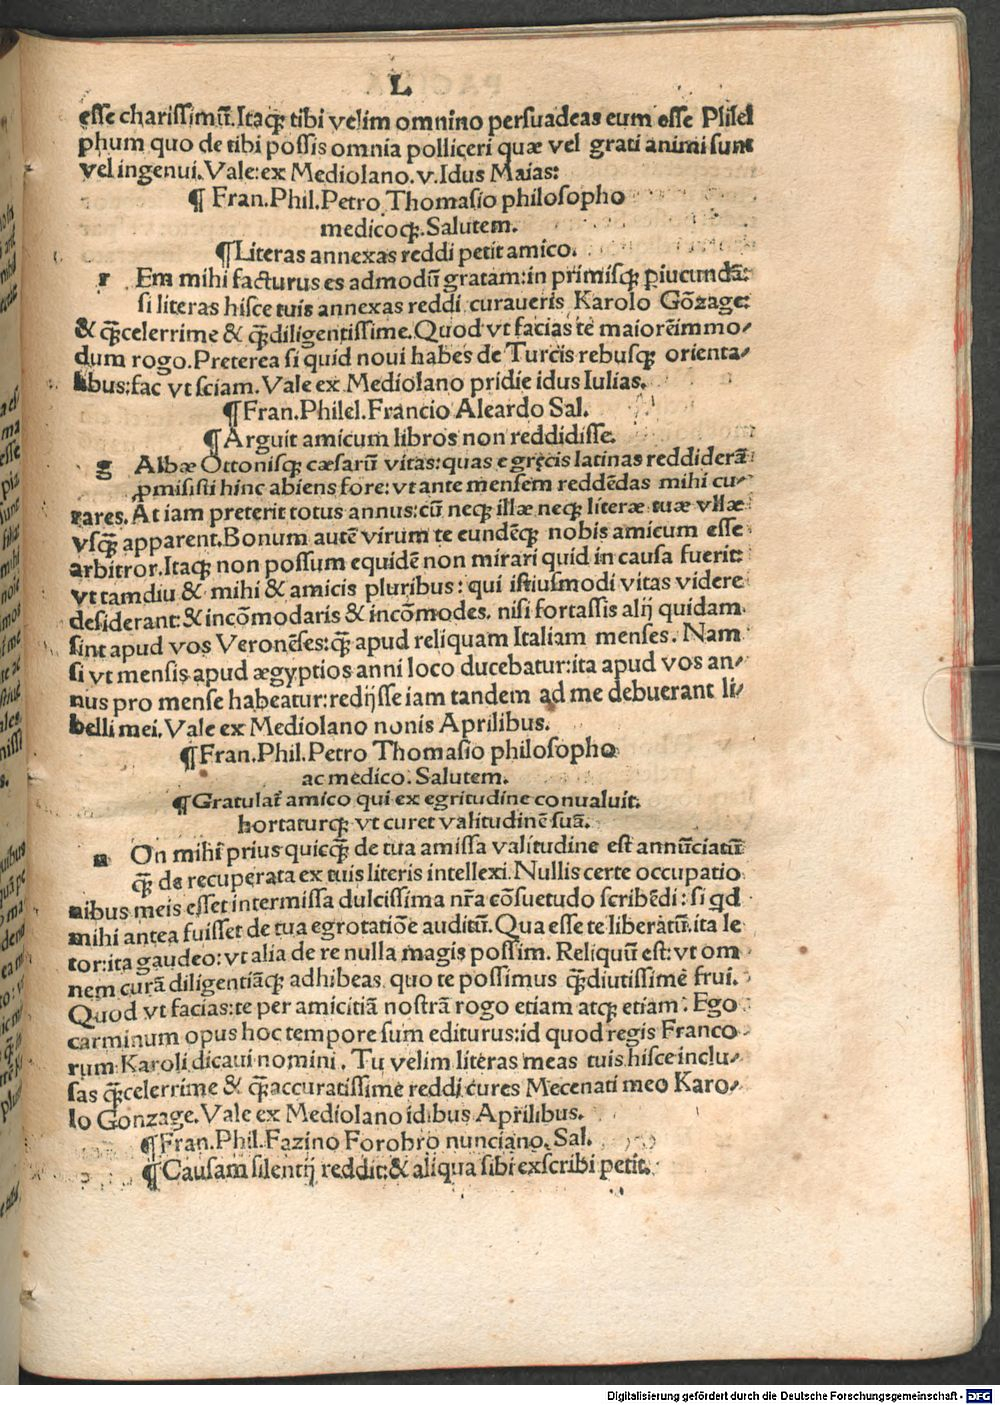 L
esse charissimū. Itaqꝫ tibi velim omnino persuadeas eum esse Philel
phum quo de tibi possis omnia polliceri quæ vel grati animi sunt
vel ingenui. Vale: ex Mediolano. v. Idus Maias:
¶ Fran. Phil. Petro Thomasio philosopho
medicoqꝫ. Salutem.
¶ Literas annexas reddi petit amico.
r Em mihi facturus es admodū gratam: in primisqꝫ ꝑiucundā:
si literas hisce tuis annexas reddi curaueris Karolo Gōzage:
& qꝫ̄celerrime & qꝫ̄diligentissime. Quod vt facias te maiorēimmo/
dum rogo. Preterea si quid noui habes de Turcis rebusqꝫ orienta/
libus: fac vt sciam. Vale ex Mediolano pridie idus Iulias.
¶ Fran. Philel. Francio Aleardo Sal.
¶ Arguit amicum libros non reddidisse.
g Albæ Ottonisqꝫ cæsarū vitas: quas e gręcis latinas reddiderā
ꝓmisisti hinc abiens fore: vt ante mensem reddēdas mihi cu/
rares. At iam preterit totus annus: cū neqꝫ illæ neqꝫ literæ tuæ vllæ
vsqꝫ̄ apparent. Bonum autē virum te eundēqꝫ nobis amicum esse
arbitror. Itaqꝫ non possum equidē non mirari quid in causa fuerit:
vt tamdiu & mihi & amicis pluribus: qui istiusmodi vitas videre
desiderant: & incōmodaris & incōmodes. nisi fortassis alij quidam
sint apud vos Veronēses: qꝫ̄ apud reliquam Italiam menses. Nam
si vt mensis apud ægyptios anni loco ducebatur: ita apud vos an/
nus pro mense habeatur: redijsse iam tandem ad me debuerant li/
belli mei. Vale ex Mediolano nonis Aprilibus.
¶ Fran. Phil. Petro Thomasio philosopho
ac medico. Salutem.
¶ Gratulat̄ amico qui ex egritudine conualuit.
hortaturqꝫ vt curet valitudinē suā.
n On mihi prius quicqꝫ̄ de tua amissa valitudine est annūciatū
qꝫ̄ de recuperata ex tuis literis intellexi. Nullis certe occupatio
nibus meis esset intermissa dulcissima nr̄a cōsuetudo scribēdi: si qd
mihi antea fuisset de tua egrotatiōe auditū. Qua esse te liberatū. ita le
tor: ita gaudeo: vt alia de re nulla magis possim. Reliquū est: vt om
nem curā diligentiāqꝫ adhibeas quo te possimus qꝫ̄diutissime frui.
Quod vt facias: te per amicitiā nostrā rogo etiam atqꝫ etiam. Ego
carminum opus hoc tempore sum editurus: id quod regis Franco
rum Karoli dicaui nomini. Tu velim literas meas tuis hisce inclu/
sas qꝫ̄celerrime & qꝫ̄accuratissime reddi cures Mecenati meo Karo/
lo Gonzage. Vale ex Mediolano idibus Aprilibus.
¶ Fran. Phil. Fazino Forobro nunciano. Sal.
¶ Causam silentij reddit: & aliqua sibi exscribi petit.
Digitalisierung gefördert durch die Deutsche Forschungsgemeinschaft - DFG